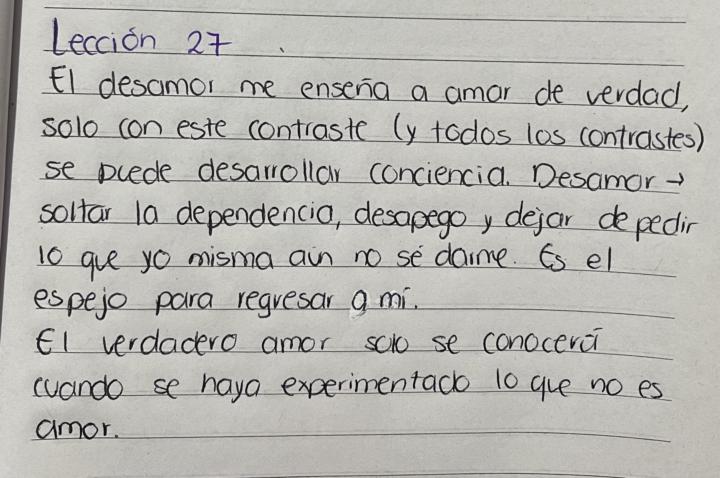 Lección 27
El desamor me enseña a amar de verdad,
solo con este contraste (y todos los contrastes)
se puede desarrollar conciencia. Desamor →
soltar la dependencia, desapego y dejar de pedir
lo que yo misma aún no sé darme. Es el
espejo para regresar a mí.
El verdadero amor solo se conocerá
cuando se haya experimentado lo que no es
amor.